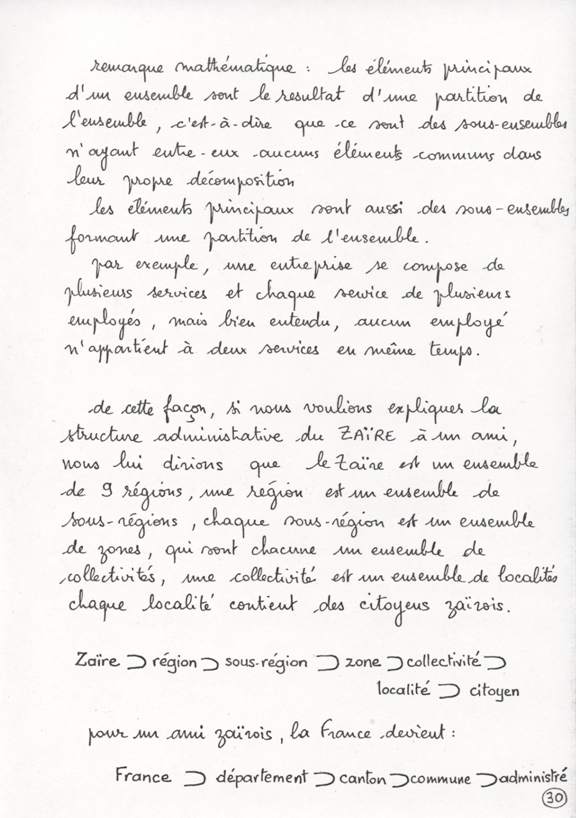 remarque mathématique : les éléments principaux
d'un ensemble sont le resultat d'une partition de
l'ensemble, c'est-à-dire que ce sont des sous-ensembles
n'ayant entre-eux aucuns éléments communs dans
leur propre décomposition
les éléments principaux sont aussi des sous-ensembles
formant une partition de l'ensemble.
par exemple, une entreprise se compose de
plusieurs services et chaque service de plusieurs
employés, mais bien entendu, aucun employé
n'appartient à deux services en même temps.
de cette façon, si nous voulions expliquer la
structure administrative du ZAÏRE à un ami,
nous lui dirions que le Zaïre est un ensemble
de 9 régions, une région est un ensemble de
sous-régions, chaque sous-région est un ensemble
de zones, qui sont chacune un ensemble de
collectivités, une collectivité est un ensemble de localités
chaque localité contient des citoyens zaïrois.
Zaïre ⊃ région ⊃ sous-région ⊃ zone ⊃ collectivité ⊃
localité ⊃ citoyen
pour un ami zaïrois, la France devient :
France ⊃ département ⊃ canton ⊃ commune ⊃ administré
30